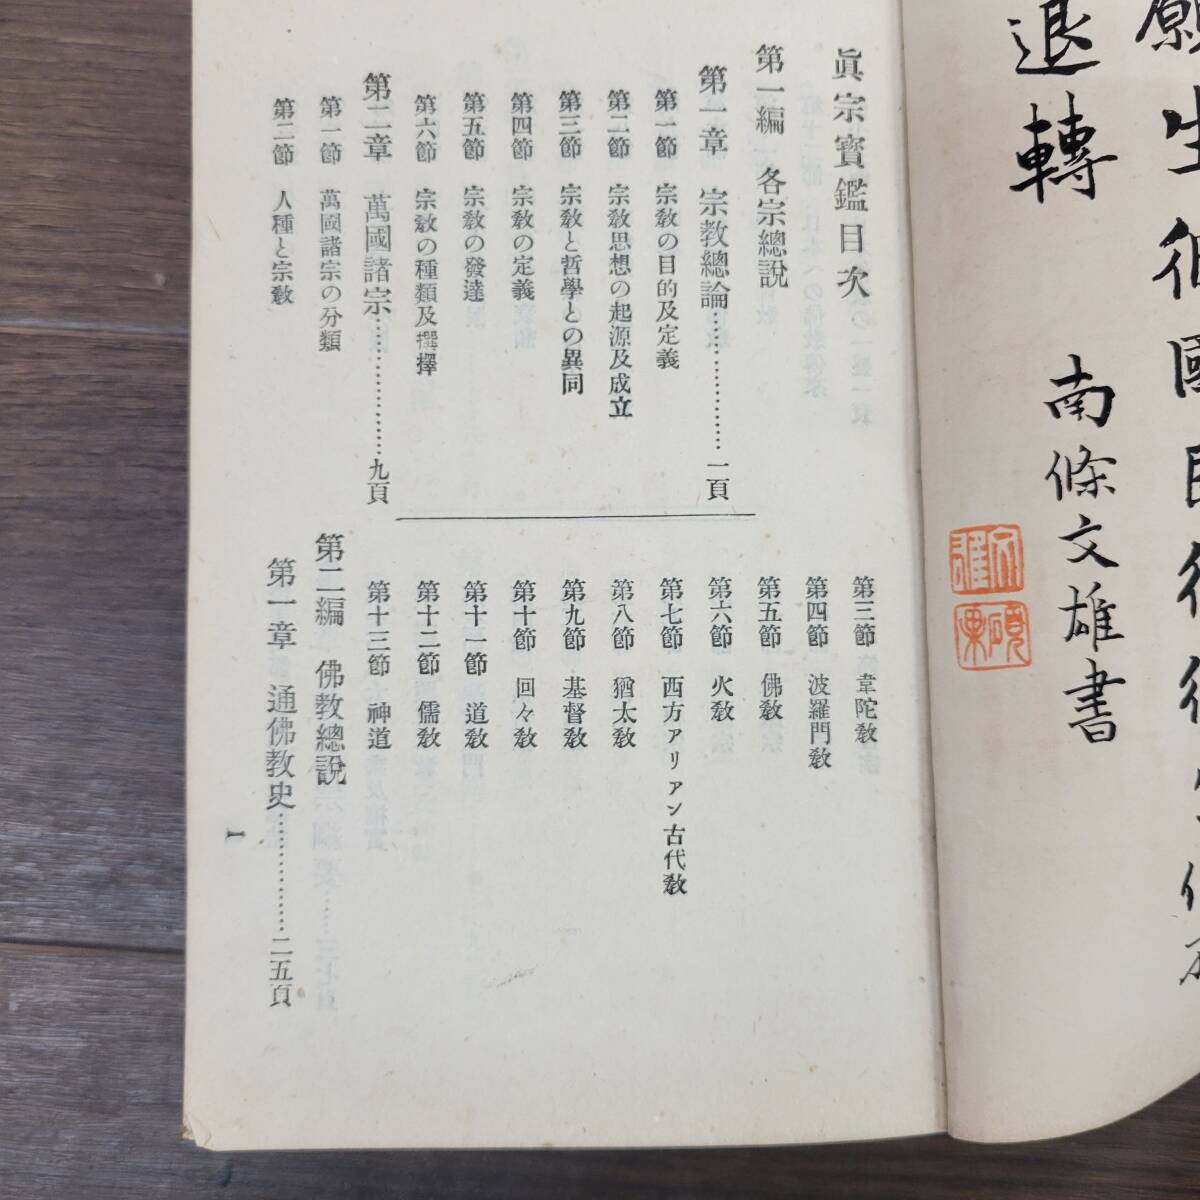 願生彼國即得往生住不
退轉
南條文雄書
眞宗寶鑑目次
第一編 各宗總說
第一章 宗教總論………………一頁
第一節 宗教の目的及定義
第二節 宗教思想の起源及成立
第三節 宗教と哲學との異同
第四節 宗教の定義
第五節 宗教の發達
第六節 宗教の種類及撰擇
第二章 萬國諸宗………………九頁
第一節 萬國諸宗の分類
第二節 人種と宗教
第三節 韋陀教
第四節 波羅門教
第五節 佛教
第六節 火教
第七節 西方アリアン古代教
第八節 猶太教
第九節 基督教
第十節 回々教
第十一節 道教
第十二節 儒教
第十三節 神道
第二編 佛教總說
第一章 通佛教史………………二五頁
1